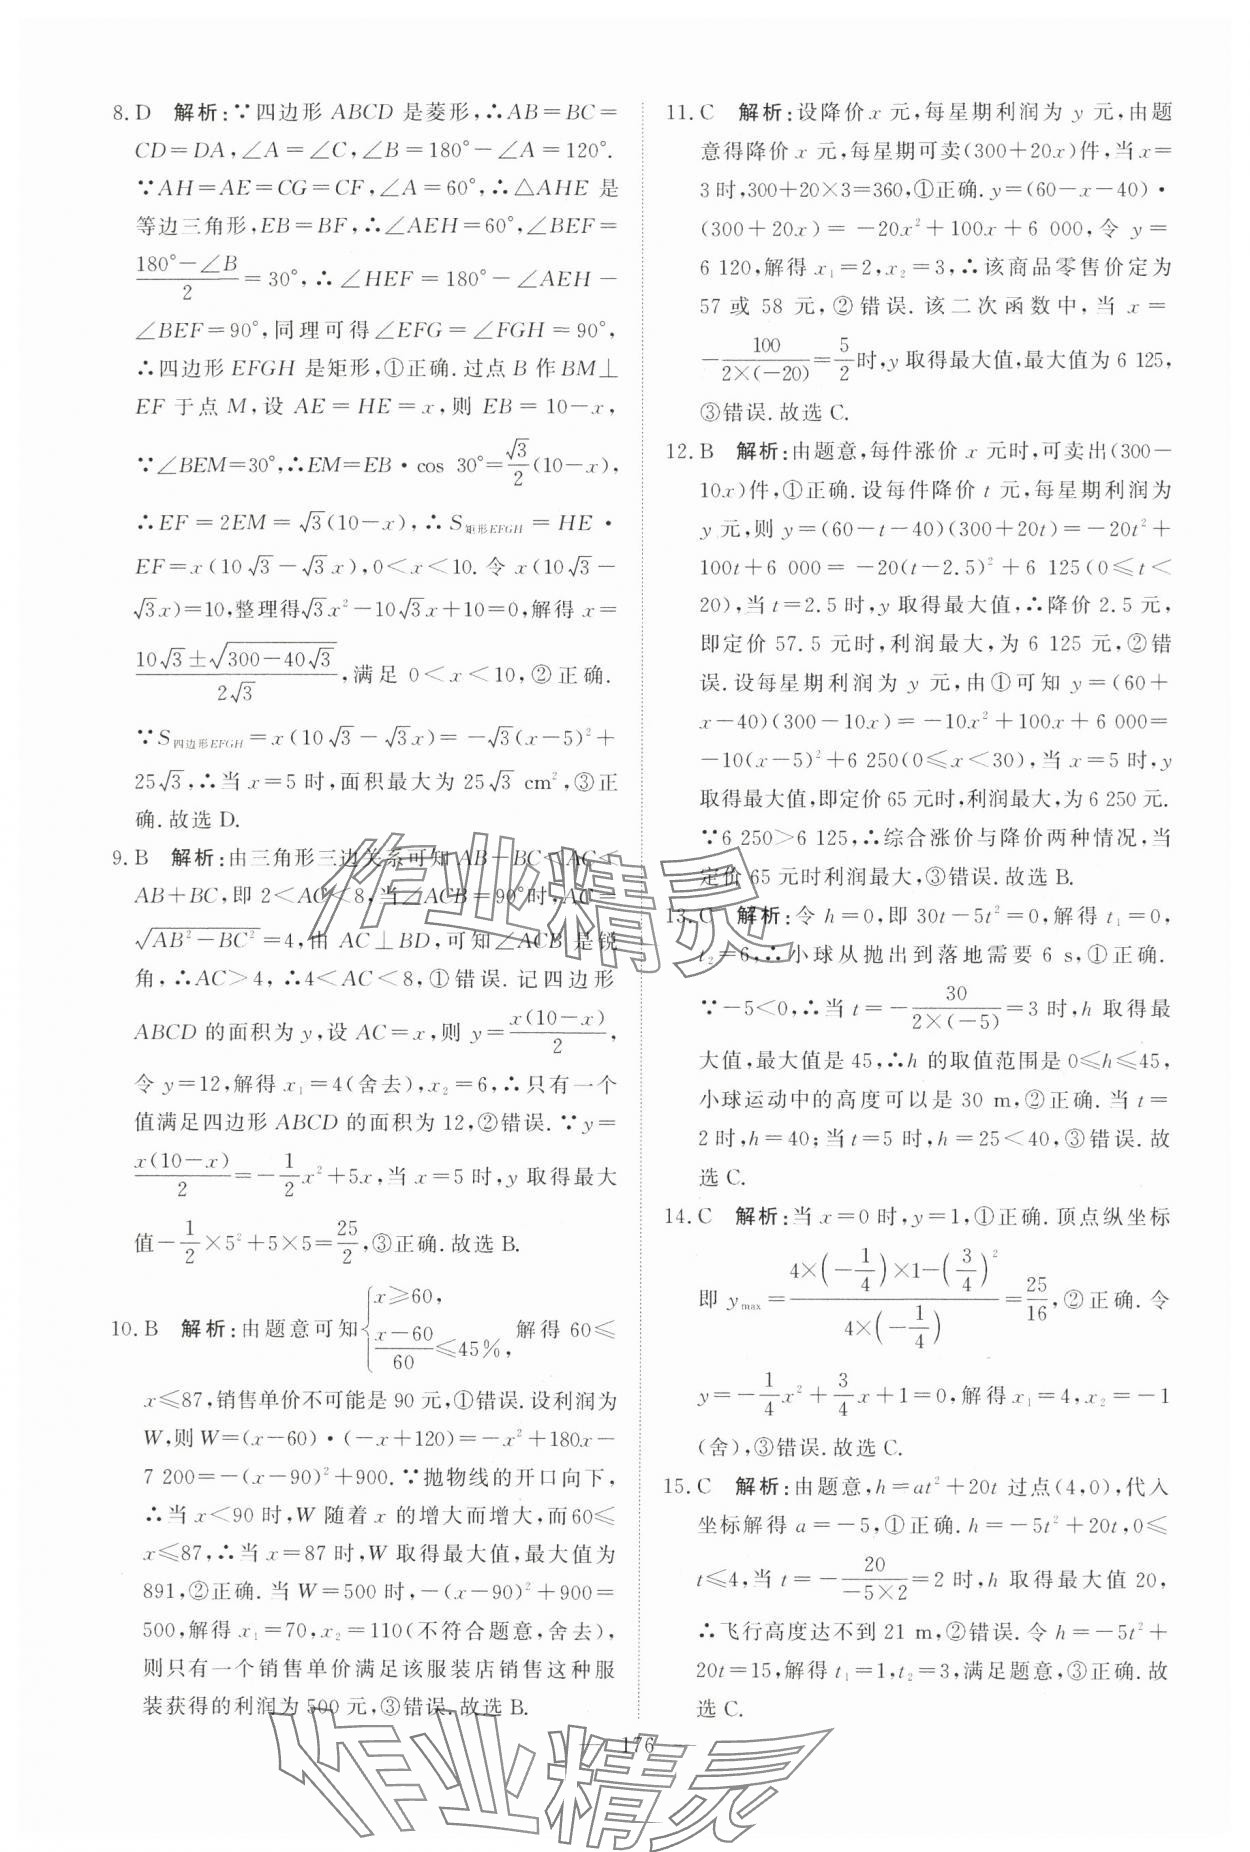 8. D 解析:∵四边形 ABCD 是菱形,∴AB=BC=
CD=DA,∠A=∠C,∠B=180°-∠A=120°.
∵AH=AE=CG=CF,∠A=60°,∴△AHE 是
等边三角形,EB=BF,∴∠AEH=60°,∠BEF=
(180°-∠B)/2=30°,∴∠HEF=180°-∠AEH-
∠BEF=90°,同理可得∠EFG=∠FGH=90°,
∴四边形 EFGH 是矩形,①正确.过点 B 作 BM⊥
EF 于点 M,设 AE=HE=x,则 EB=10-x,
∵∠BEM=30°,∴EM=EB·cos 30°=√3/2(10-x),
∴EF=2EM=√3(10-x),∴S矩形EFGH=HE·
EF=x(10√3-√3x),0<x<10.令 x(10√3-
√3x)=10,整理得√3x²-10√3x+10=0,解得 x=
(10√3±√(300-40√3))/(2√3),满足 0<x<10,②正确.
∵S四边形EFGH=x(10√3-√3x)=-√3(x-5)²+
25√3,∴当 x=5 时,面积最大为 25√3 cm²,③正
确.故选 D.
9. B 解析:由三角形三边关系可知 AB-BC<AC<
AB+BC,即 2<AC<8,当∠ACB=90°时,AC=
√(AB²-BC²)=4,由 AC⊥BD,可知∠ACB 是锐
角,∴AC>4,∴4<AC<8,①错误.记四边形
ABCD 的面积为 y,设 AC=x,则 y=x(10-x)/2,
令 y=12,解得 x₁=4(舍去),x₂=6,∴只有一个
值满足四边形 ABCD 的面积为 12,②错误.∵y=
x(10-x)/2=-1/2x²+5x,当 x=5 时,y 取得最大
值-1/2×5²+5×5=25/2,③正确.故选 B.
10. B 解析:由题意可知{x≥60, (x-60)/60≤45%, 解得 60≤
x≤87,销售单价不可能是 90 元,①错误.设利润为
W,则 W=(x-60)·(-x+120)=-x²+180x-
7 200=-(x-90)²+900.∵抛物线的开口向下,
∴当 x<90 时,W 随着 x 的增大而增大,而60≤
x≤87,∴当 x=87 时,W 取得最大值,最大值为
891,②正确.当 W=500 时,-(x-90)²+900=
500,解得 x₁=70,x₂=110(不符合题意,舍去),
则只有一个销售单价满足该服装店销售这种服
装获得的利润为 500 元,③错误.故选 B.
11. C 解析:设降价 x 元,每星期利润为 y 元,由题
意得降价 x 元,每星期可卖(300+20x)件,当 x=
3 时,300+20×3=360,①正确.y=(60-x-40)·
(300+20x)=-20x²+100x+6 000,令 y=
6 120,解得 x₁=2,x₂=3,∴该商品零售价定为
57 或 58 元,②错误.该二次函数中,当 x=
-100/(2×(-20))=5/2时,y 取得最大值,最大值为 6 125,
③错误.故选 C.
12. B 解析:由题意,每件涨价 x 元时,可卖出(300-
10x)件,①正确.设每件降价 t 元,每星期利润为
y 元,则 y=(60-t-40)(300+20t)=-20t²+
100t+6 000=-20(t-2.5)²+6 125(0≤t<
20),当 t=2.5 时,y 取得最大值,∴降价 2.5 元,
即定价 57.5 元时,利润最大,为 6 125 元,②错
误.设每星期利润为 y 元,由①可知 y=(60+
x-40)(300-10x)=-10x²+100x+6 000=
-10(x-5)²+6 250(0≤x<30),当 x=5 时,y
取得最大值,即定价 65 元时,利润最大,为 6 250 元.
∵6 250>6 125,∴综合涨价与降价两种情况,当
定价 65 元时利润最大,③错误.故选 B.
13. C 解析:令 h=0,即 30t-5t²=0,解得 t₁=0,
t₂=6,∴小球从抛出到落地需要 6 s,①正确.
∵-5<0,∴当 t=-30/(2×(-5))=3 时,h 取得最
大值,最大值是 45,∴h 的取值范围是 0≤h≤45,
小球运动中的高度可以是 30 m,②正确.当 t=
2 时,h=40;当 t=5 时,h=25<40,③错误.故
选 C.
14. C 解析:当 x=0 时,y=1,①正确.顶点纵坐标
即 ymax=(4×(-1/4)×1-(3/4)²)/(4×(-1/4))=25/16,②正确.令
y=-1/4x²+3/4x+1=0,解得 x₁=4,x₂=-1
(舍),③错误.故选 C.
15. C 解析:由题意,h=at²+20t 过点(4,0),代入
坐标解得 a=-5,①正确.h=-5t²+20t,0≤
t≤4,当 t=-20/(-5×2)=2 时,h 取得最大值 20,
∴飞行高度达不到 21 m,②错误.令 h=-5t²+
20t=15,解得 t₁=1,t₂=3,满足题意,③正确.故
选 C.
176
作业精灵
作业精灵